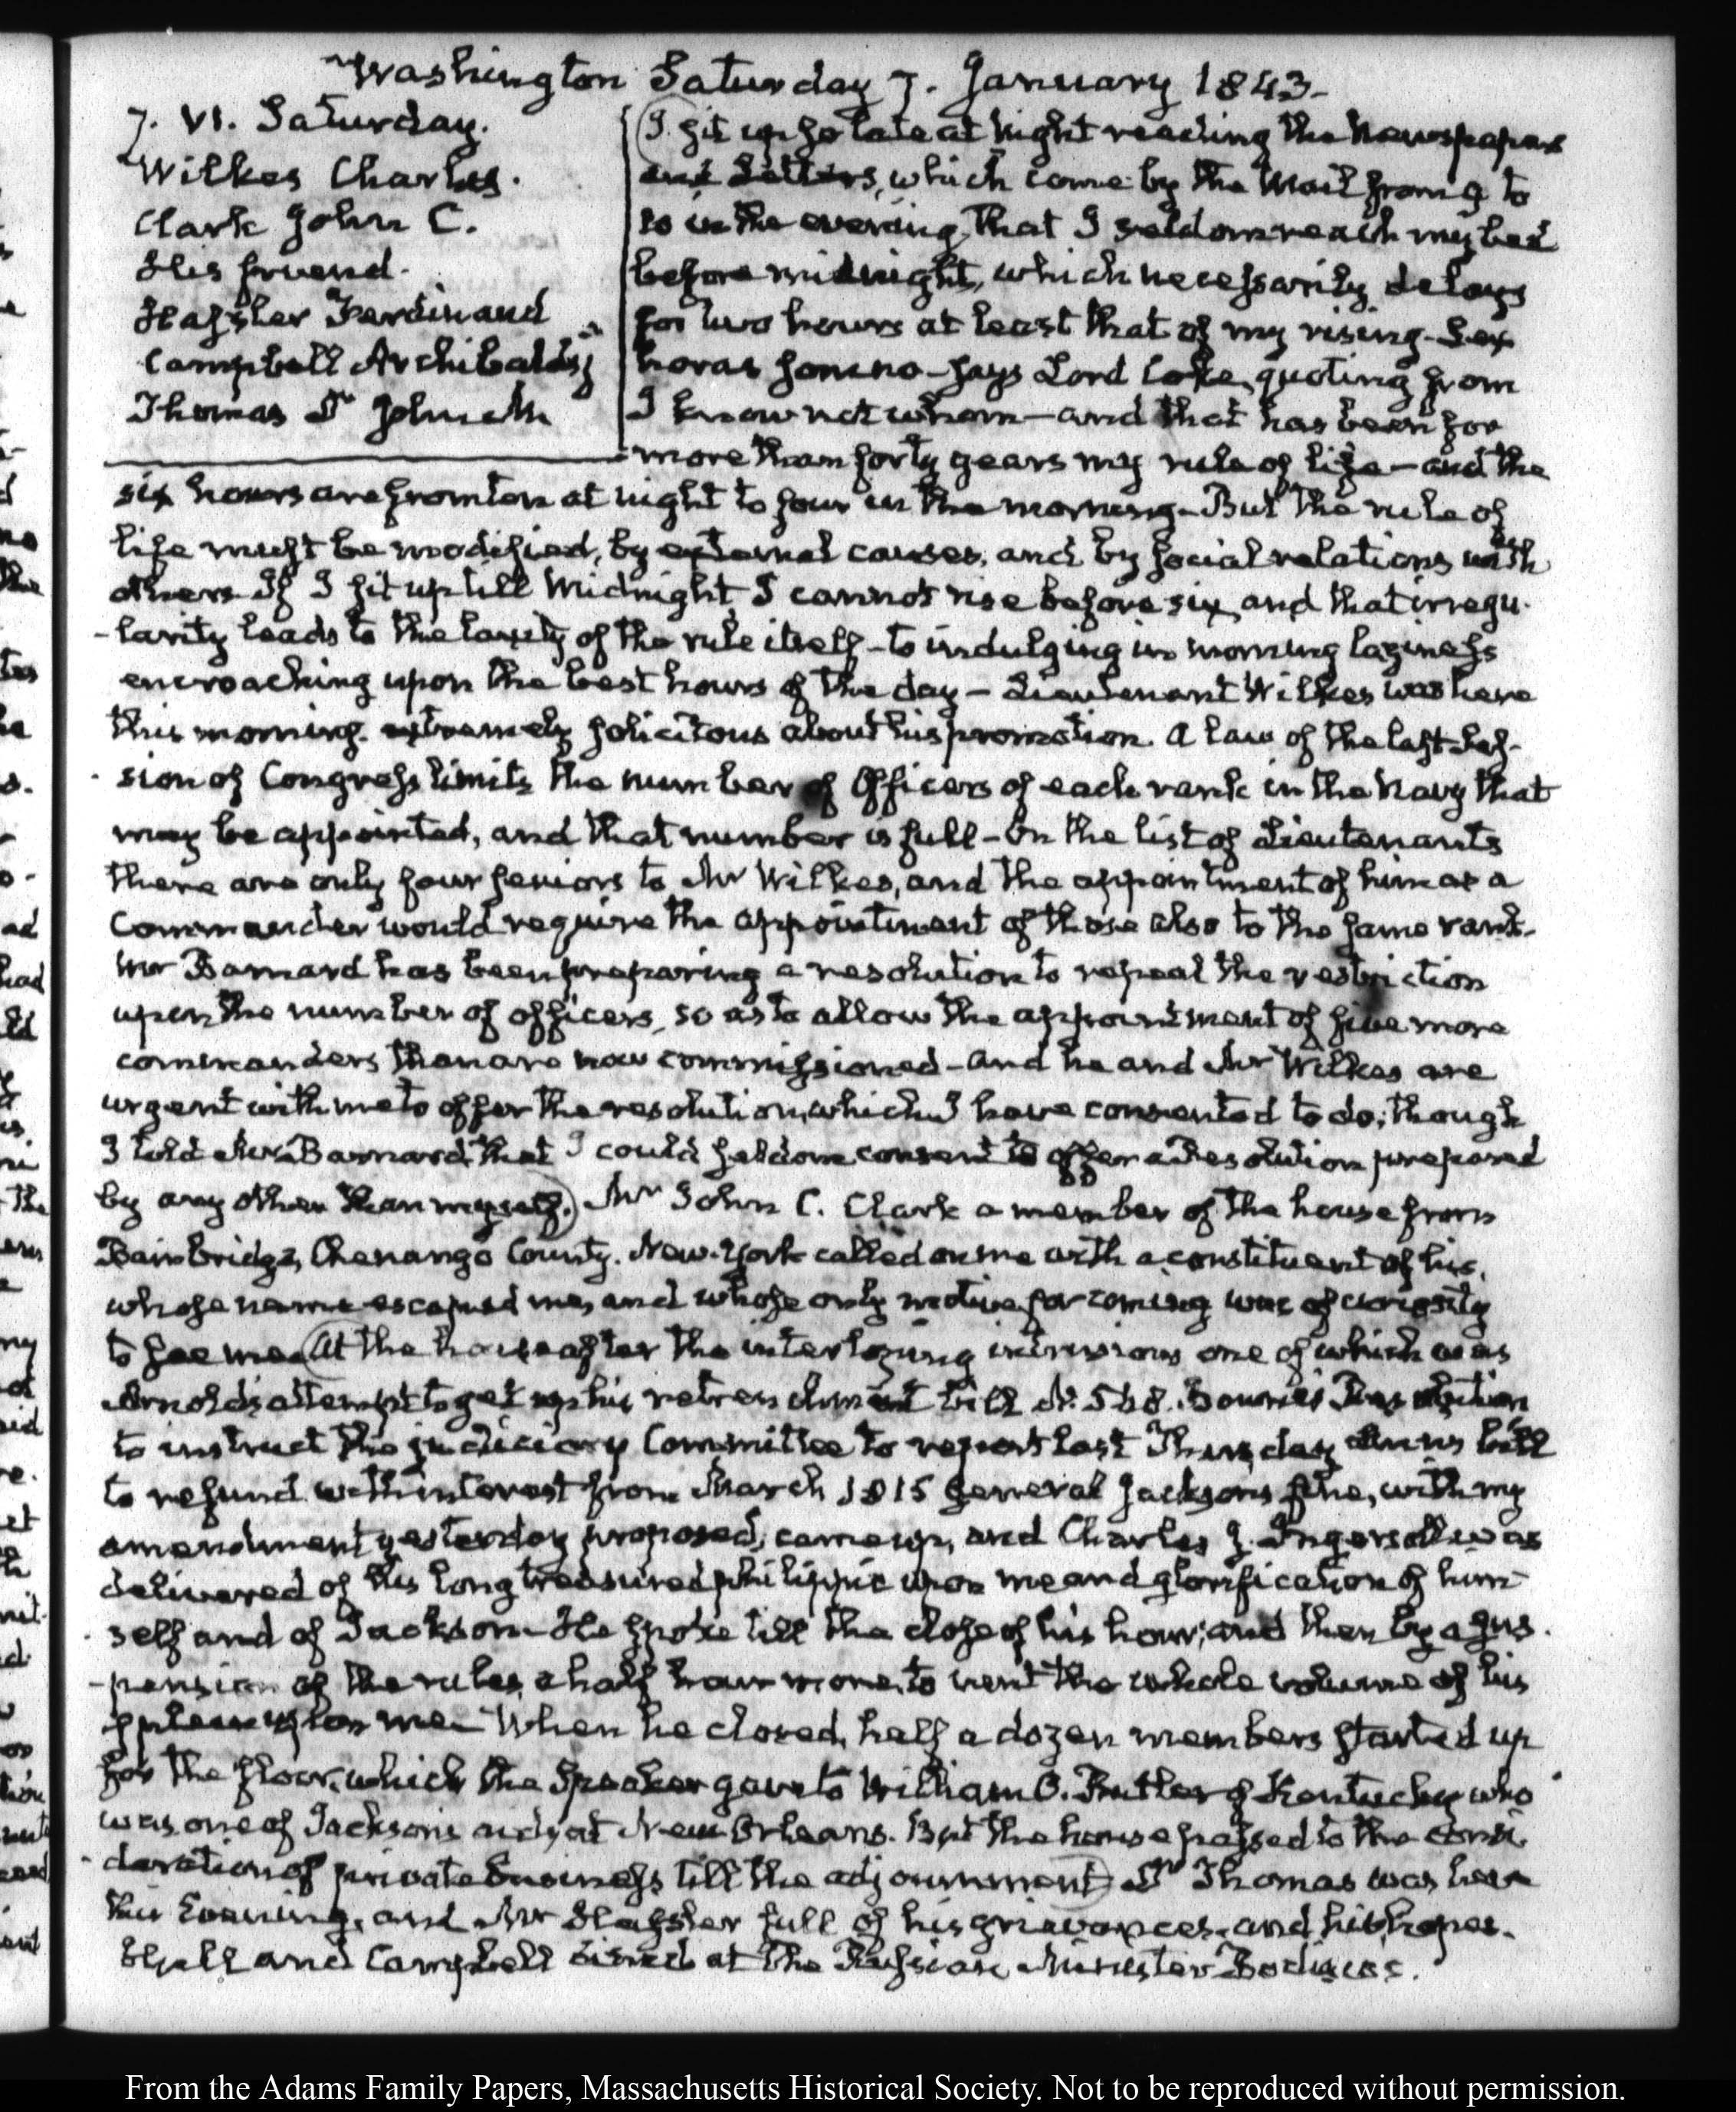 Washington Saturday 7. January 1843.
7. VI. Saturday.
Wilkes Charles.
Clark John C.
His friend.
Hassler Ferdinand
Campbell Archibald
Thomas Dr John M
I sit up so late at Night reading the Newspapers
and Letters, which come by the Mail from 9 to
10 in the evening, that I seldom reach my bed
before midnight, which necessarily delays
for two hours at least that of my rising. Sex
horas somno — says Lord Coke, quoting from
I know not whom — and that has been for
more than forty years my rule of life — and the
six hours are from ten at night to four in the morning. But the rule of
life must be modified, by external causes, and by social relations with
others. If I sit up till Midnight I cannot rise before six, and that irregu-
-larity leads to the laxity of the rule itself — to indulging in morning laziness
encroaching upon the best hours of the day — Lieutenant Wilkes was here
this morning. extremely solicitous about his promotion. A law of the last Ses-
-sion of Congress limits the number of Officers of each rank in the Navy that
may be appointed, and that number is full — On the list of Lieutenants
there are only four seniors to Mr Wilkes, and the appointment of him as a
Commander would require the appointment of those also to the same rank.
Mr Barnard has been preparing a resolution to repeal the restriction
upon the number of officers, so as to allow the appointment of five more
commanders than are now commissioned — and he and Mr Wilkes are
urgent with me to offer the resolution, which I have consented to do; though
I told Mr Barnard that I could seldom consent to offer a Resolution prepared
by any other than myself. Mr John C. Clark a member of the house from
Bainbridge, Chenango County. New-York called on me with a constituent of his,
whose name escaped me, and whose only motive for coming was of curiosity
to see me. At the house after the interloping intrusions one of which was
Arnold's attempt to get up his retrenchment bill N. 548. Resolution
to instruct the judiciary Committee to report last Thursday a bill
to refund with interest from March 1815 General Jacksons fine, with my
amendment yesterday proposed, came up, and Charles J. Ingersoll was
delivered of his long treasured philippic upon me and glorification of him-
self and of Jackson. He spoke till the close of his hour; and then by a sus-
-pension of the rules, a half hour more, to vent the whole volume of his
spleen upon me — When he closed, half a dozen members started up
for the floor, which the Speaker gave to William O. Butler of Kentucky who
was one of Jackson's aids at New Orleans. But the house passed to the consi-
-deration of private business till the adjournment. Dr Thomas was here
this Evening, and Mr Hassler full of his grievances, and his hopes.
and Campbell dined at the Russian Minister Bodisco's.
From the Adams Family Papers, Massachusetts Historical Society. Not to be reproduced without permission.